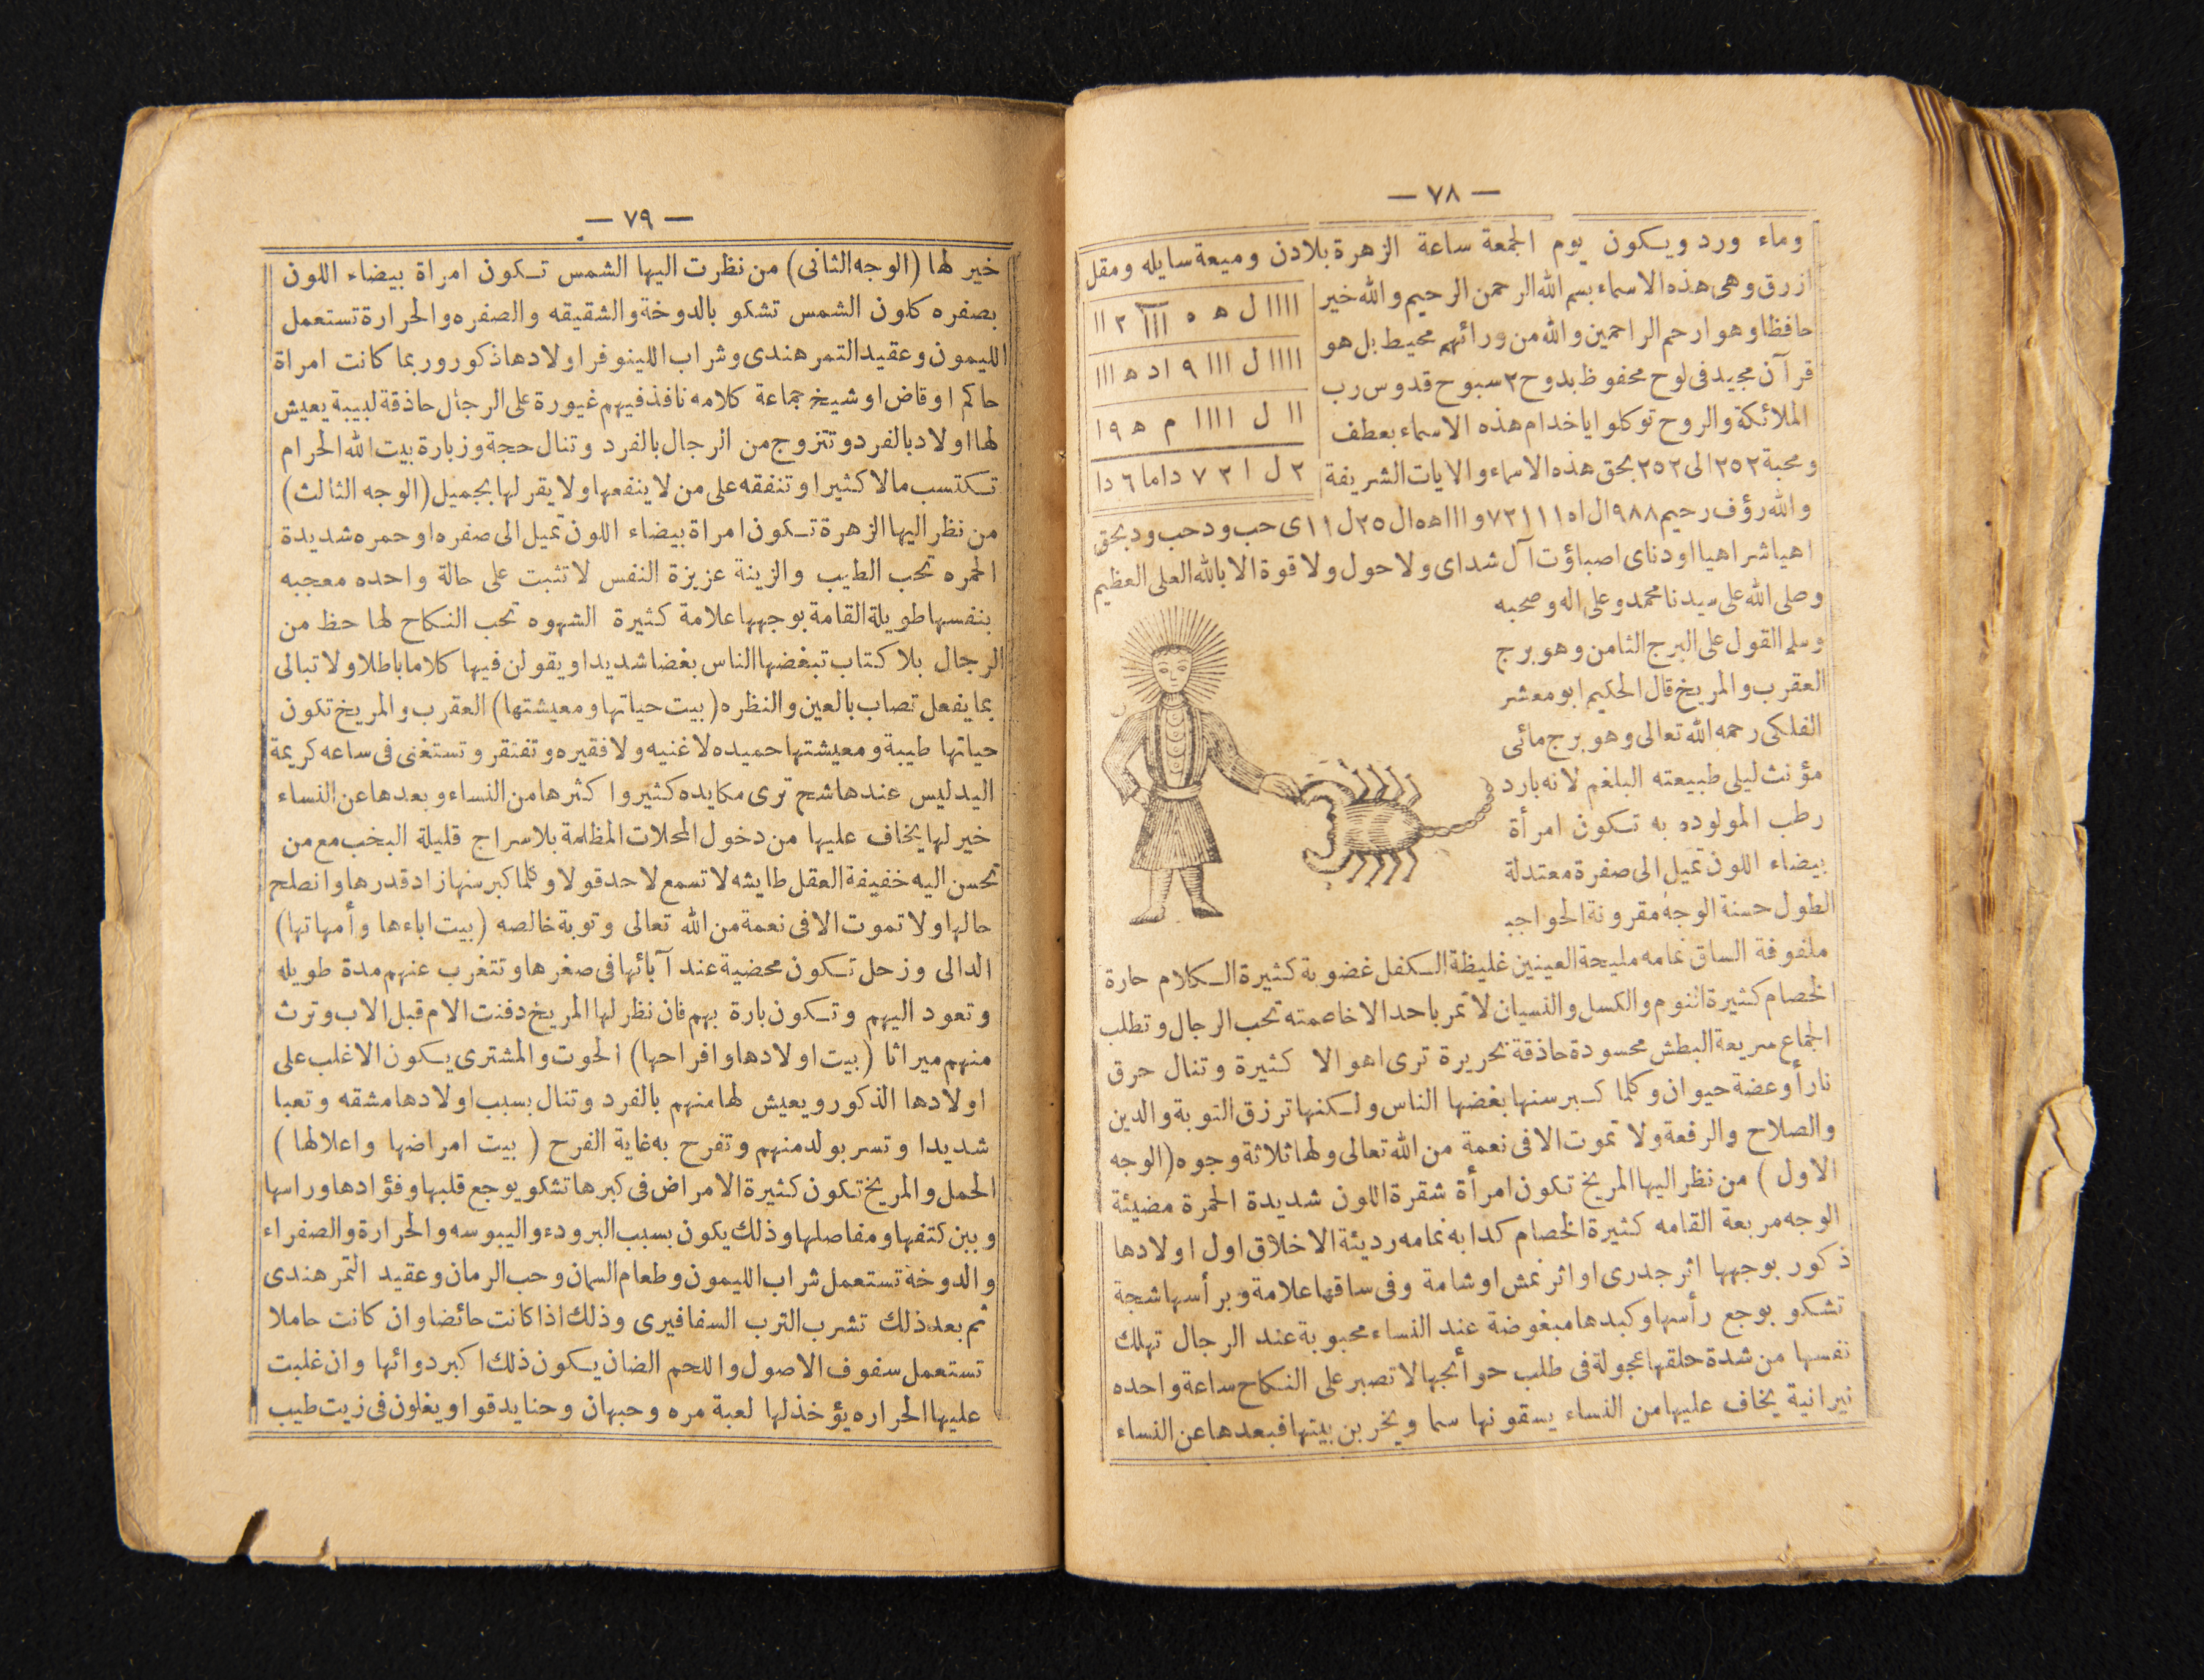 — ٧٨ —
وماء ورد ويكون يوم الجمعة ساعة الزهرة بلادن وميعة سايله ومقل
ازرق وهى هذه الاسماء بسم الله الرحمن الرحيم والله خير
حافظا وهو ارحم الراحمين والله من ورائهم محيط بل هو
قرآن مجيد فى لوح محفوظ بدوح ٢ سبوح قدوس رب
الملائكة والروح توكلوا ياخدام هذه الاسماء بعطف
ومحبة ٢٥٢ الى ٢٥٢ بحق هذه الاسماء والايات الشريفة
اااا ل ه ٥ ااا ٢ اا
اااا ل ااا ٩ اد ه ااا
اا ل اااا م ه ٩ ا
٢ ل ا ٢ ٧ داما ٦ دا
والله رؤف رحيم ٩٨٨ ال اه ١١١ ٧٢ و ااا ه ه ال ٢٥ ل ١١ ى حب ود حب ود بحق
اهيا شراهيا ادوناى اصباؤت آل شداى ولا حول ولا قوة الا بالله العلى العظيم
وصلى الله على سيدنا محمد وعلى اله وصحبه
وسلم القول على البرج الثامن وهو برج
العقرب والمريخ قال الحكيم ابو معشر
الفلكى رحمه الله تعالى وهو برج مائى
مؤنث ليلى طبيعته البلغم لانه بارد
رطب المولوده به تكون امرأة
بيضاء اللون تميل الى صفرة معتدلة
الطول حسنة الوجه مقرونة الحواجب
ملفوفة الساق نمامه مليحة العينين غليظة الكفل غضوبة كثيرة الكلام حارة
الخصام كثيرة النوم والكسل والنسيان لا تمر باحد الا خاصمته تحب الرجال وتطلب
الجماع سريعة البطش محسودة حاذقة نحريرة ترى اهوالا كثيرة وتنال حرق
نار أو عضة حيوان وكلما كبر سنها بغضها الناس ولكنها ترزق التوبة والدين
والصلاح والرفعة ولا تموت الا فى نعمة من الله تعالى ولها ثلاثة وجوه (الوجه
الاول) من نظر اليها المريخ تكون امرأة شقرة اللون شديدة الحمرة مضيئة
الوجه مربعة القامه كثيرة الخصام كدابه نمامه رديئة الاخلاق اول اولادها
ذكور بوجهها اثر جدرى او اثر نمش او شامة وفى ساقها علامة وبرأسها شجة
تشكو بوجع رأسها وكبدها مبغوضة عند النساء محبوبة عند الرجال تهلك
نفسها من شدة حلقها عجولة فى طلب حوأئجها لا تصبر على النكاح ساعة واحده
نيرانية يخاف عليها من النساء يسقونها سما ويخربن بيتها فبعدها عن النساء
— ٧٩ —
خير لها (الوجه الثانى) من نظرت اليها الشمس تكون امراة بيضاء اللون
بصفره كلون الشمس تشكو بالدوخة والشقيقه والصفره والحرارة تستعمل
الليمون وعقيد التمر هندى وشراب اللينوفر اولادها ذكور وربما كانت امراة
حاكم او قاض او شيخ جماعة كلامه نافذ فيهم غيورة على الرجال حاذقة لبيبة يعيش
لها اولاد بالفرد وتتزوج من الرجال بالفرد وتنال حجة وزيارة بيت الله الحرام
تكتسب مالا كثيرا وتنفقه على من لا ينفعها ولا يقر لها بجميل (الوجه الثالث)
من نظر اليها الزهرة تكون امراة بيضاء اللون تميل الى صفره او حمره شديدة
الحمره تحب الطيب والزينة عزيزة النفس لا تثبت على حالة واحده معجبه
بنفسها طويلة القامة بوجهها علامة كثيرة الشهوه تحب النكاح لها حظ من
الرجال بلا كتاب تبغضها الناس بغضا شديدا ويقولن فيها كلاما باطلا ولا تبالى
بما يفعل تصاب بالعين والنظره (بيت حياتها ومعيشتها) العقرب والمريخ تكون
حياتها طيبة ومعيشتها حميده لا غنيه ولا فقيره وتفتقر وتستغنى فى ساعه كريمة
اليد ليس عندها شح ترى مكايده كثير واكثرها من النساء وبعدها عن النساء
خير لها يخاف عليها من دخول المحلات المظلمة بلا سراج قليلة البخت مع من
تحسن اليه خفيفة العقل طايشه لا تسمع لاحد قولا وكلما كبر سنها زاد قدرها وانصلح
حالها ولا تموت الا فى نعمة من الله تعالى وتوبة خالصه (بيت اباءها وأمهاتها)
الدالى وزحل تكون محضية عند آبائها فى صغرها وتتغرب عنهم مدة طويله
وتعود اليهم وتكون بارة بهم فان نظر لها المريخ دفنت الام قبل الاب وترث
منهم ميراثا (بيت اولادها وافراحها) الحوت والمشترى يكون الاغلب على
اولادها الذكور ويعيش لها منهم بالفرد وتنال بسبب اولادها مشقه وتعبا
شديدا وتسر بولد منهم وتفرح به غاية الفرح ( بيت امراضها واعلالها )
الحمل والمريخ تكون كثيرة الامراض فى كبرها تشكو بوجع قلبها وفؤادها وراسها
وبين كتفها ومفاصلها وذلك يكون بسبب البرودء واليبوسه والحرارة والصفراء
والدوخة تستعمل شراب الليمون وطعام السمان وحب الرمان وعقيد التمر هندى
ثم بعد ذلك تشرب الترب السفافيرى وذلك اذا كانت حائضا وان كانت حاملا
تستعمل سفوف الاصول واللحم الضان يكون ذلك اكبر دوائها وان غلبت
عليها الحراره يؤخذ لها لعبة مره وحبهان وحنا يدقوا ويغلون فى زيت طيب